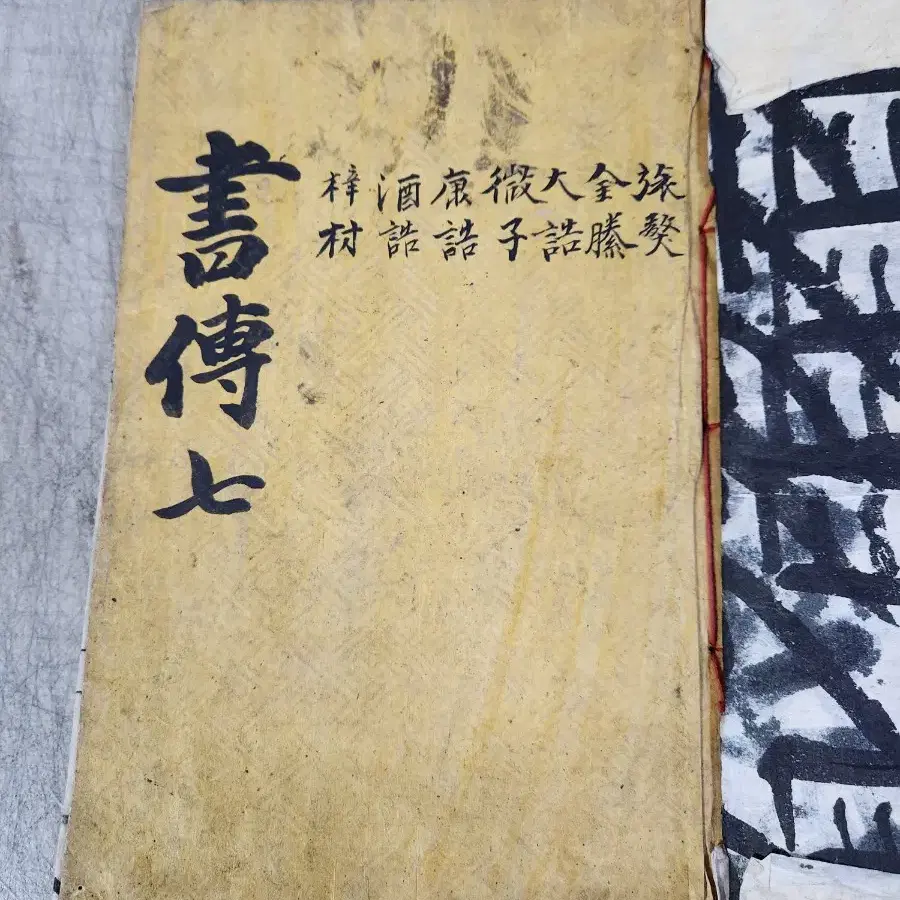 旅獒
金縢
大誥
微子
康誥
酒誥
梓材
書傳七